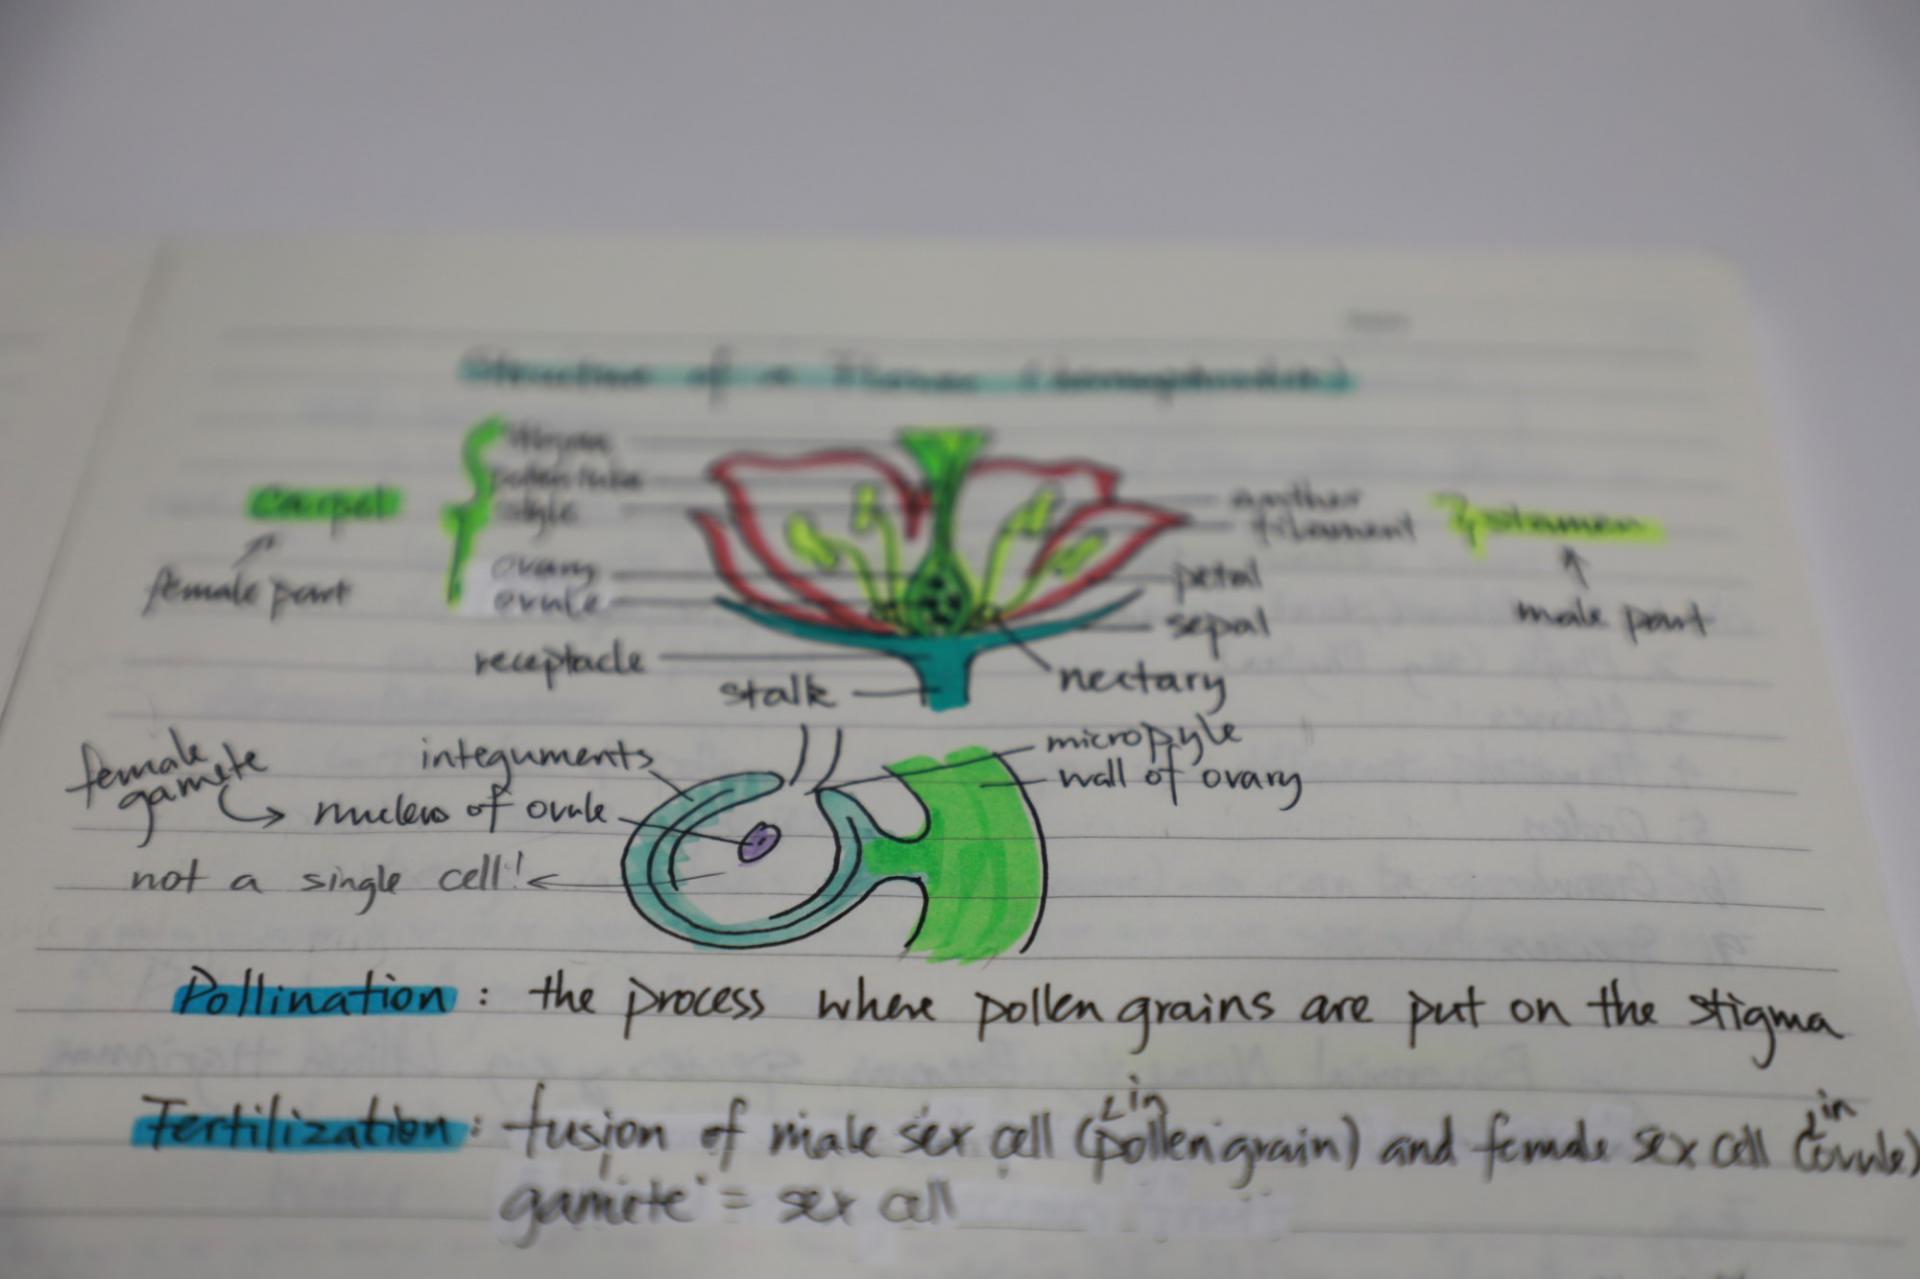 Structure of a Flower (hermaphrodite)
stigma
pollen tube
style
Carpel
female part
ovary
ovule
receptacle
stalk
anther
filament
stamen
male part
petal
sepal
nectary
female gamete
integuments
nucleus of ovule
not a single cell!
micropyle
wall of ovary
Pollination : the process where pollen grains are put on the stigma
Fertilization : fusion of male sex cell (in pollen grain) and female sex cell (in ovule)
gamete = sex cell